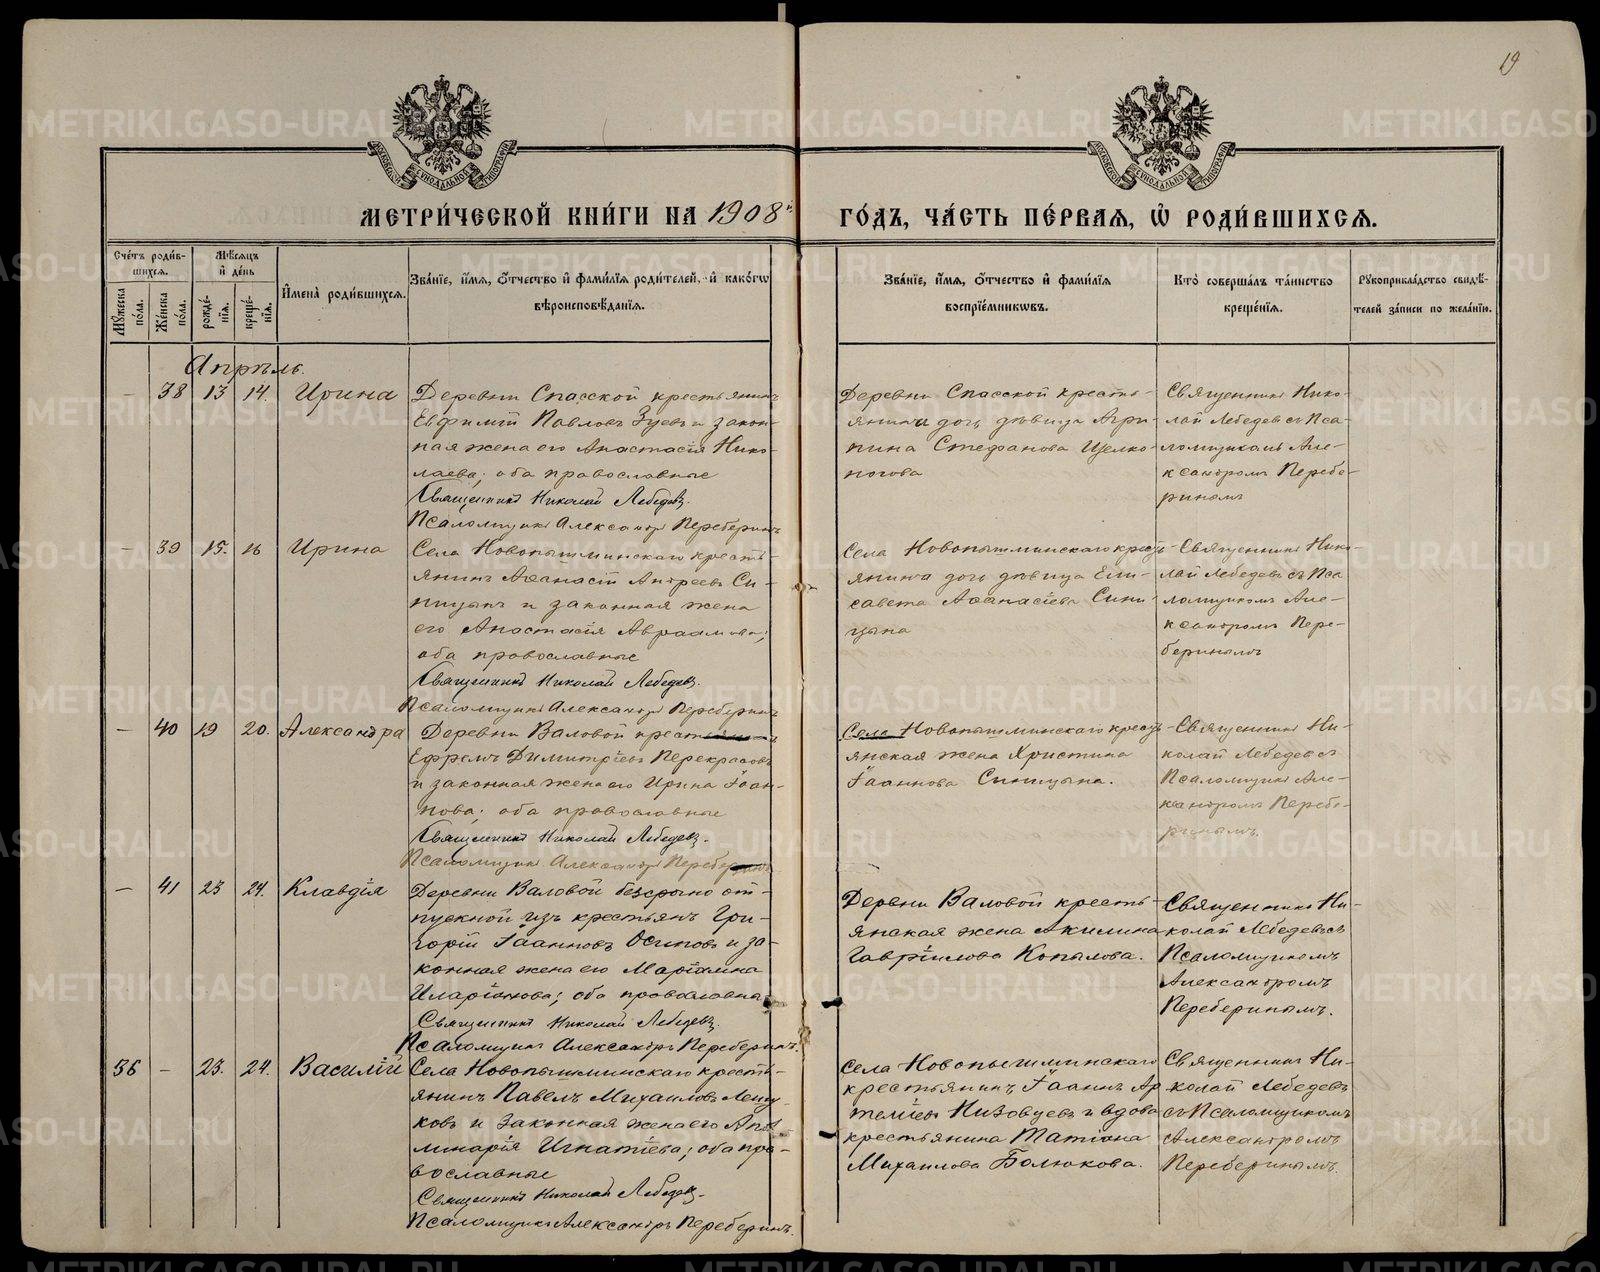 19
МЕТРИ́ЧЕСКОЙ КНИ́ГИ НА 1908й ГО́ДЪ, ЧА́СТЬ ПЕ́РВАЯ, Ѡ҆ РОДИ́ВШИХСЯ.
Сче́тъ роди́в-
шихся.
Мꙋ́жеска по́ла.
Же́нска по́ла.
Мѣ́сяцъ и҆ де́нь
рожде́-
нїя.
креще́-
нїя.
И҆мена̀ роди́вшихся.
Зва́нїе, и҆́мя, ѻ҆́тчество и҆ фами́лїя роди́телей, и҆ како́гѡ
вѣроисповѣ́данїя.
Зва́нїе, и҆́мя, ѻ҆́тчество и҆ фами́лїя
воспрїе́мникѡвъ.
Кто̀ соверша́лъ та́инство
креще́нїя.
Рꙋкоприкла́дство свидѣ́-
телей за́писи по жела́нїю.
Апрѣль.
— 38 13 14. Ирина
Деревни Спасской крестьянинъ
Евфимій Павловъ Зуевъ и закон-
ная жена его Анастасія Нико-
лаева; оба православные
Священникъ Николай Лебедевъ.
Псаломщикъ Александръ Переберинъ
Деревни Спасской кресть-
янина дочь дѣвица Агри-
пина Стефанова Щелко-
ногова
Священникъ Нико-
лай Лебедевъ съ Пса-
ломщикомъ Але-
ксандромъ Перебе-
ринымъ
— 39 15. 16 Ирина
Села Новопышминскаго кресть-
янинъ Аѳанасій Андреевъ Си-
ницынъ и законная жена
его Анастасія Авраамова;
оба православные
Священникъ Николай Лебедевъ.
Псаломщикъ Александръ Переберинъ
Села Новопышминскаго кресть-
янина дочь дѣвица Ели-
савета Аѳанасіева Сини-
цына
Священникъ Нико-
лай Лебедевъ съ Пса-
ломщикомъ Але-
ксандромъ Пере-
беринымъ
— 40 19 20. Александра
Деревни Валовой крестьянинъ
Ефремъ Димитріевъ Перекрасовъ
и законная жена его Ирина Іоан-
нова; оба православные
Священникъ Николай Лебедевъ.
Псаломщикъ Александръ Переберинъ
Села Новопышминскаго кресть-
янская жена Христина
Іоаннова Синицына.
Священникъ Ни-
колай Лебедевъ съ
Псаломщикъ Але-
ксандромъ Перебе-
ринымъ.
— 41 23 24. Клавдія
Деревни Валовой безсрочно от-
пускной изъ крестьянъ Гри-
горій Іоанновъ Осиповъ и за-
конная жена его Маріамна
Иларіонова; оба православны
Священникъ Николай Лебедевъ.
Псаломщикъ Александръ Переберинъ.
Деревни Валовой кресть-
янская жена Акилина
Гавріилова Копылова.
Священникъ Ни-
колай Лебедевъ съ
Псаломщикомъ
Александромъ
Переберинымъ.
36 — 23. 24. Василій
Села Новопышминскаго кресть-
янинъ Павелъ Михаиловъ Лещу-
ковъ и законная жена его Апо-
линарія Игнатіева; оба пра-
вославные
Священникъ Николай Лебедевъ.
Псаломщикъ Александръ Переберинъ.
Села Новопышминскаго
крестьянинъ Іоаннъ Ар
теміевъ Низовцевъ и вдова
крестьянина Татіана
Михаилова Болюкова.
Священникъ Ни-
колай Лебедевъ
съ Псаломщикомъ
Александромъ
Переберинымъ.